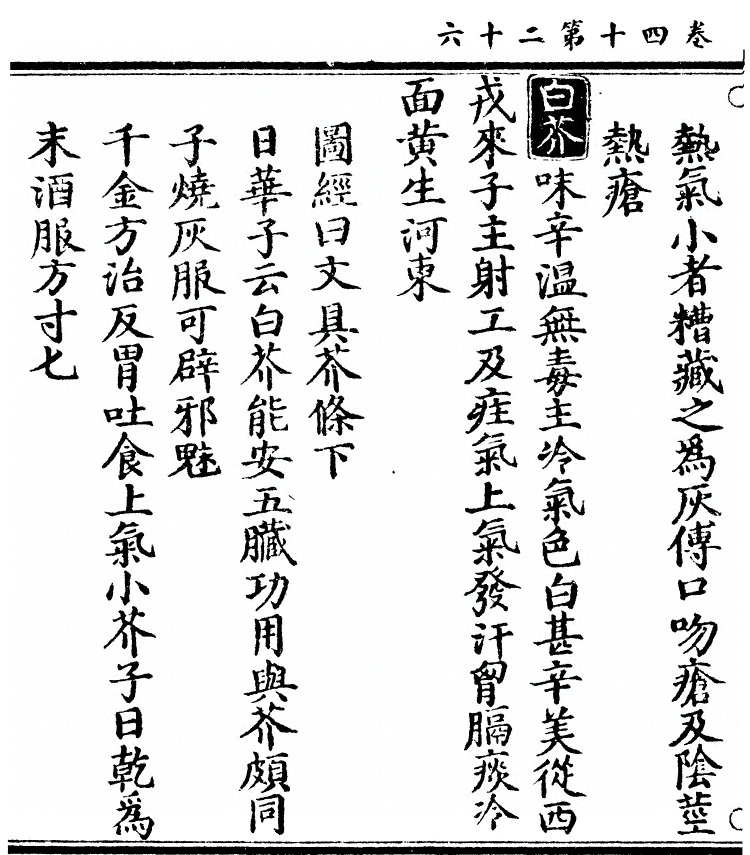 卷四十第二十六
熱氣小者糟藏之為灰傅口吻瘡及陰莖
熱瘡
白芥味辛温無毒主冷氣色白甚辛美從西
戎來子主射工及疰氣上氣發汗胷膈痰冷
面黄生河東
圖經曰文具芥條下
日華子云白芥能安五臟功用與芥頗同
子燒灰服可辟邪魅
千金方治反胃吐食上氣小芥子日乾為
末酒服方寸匕